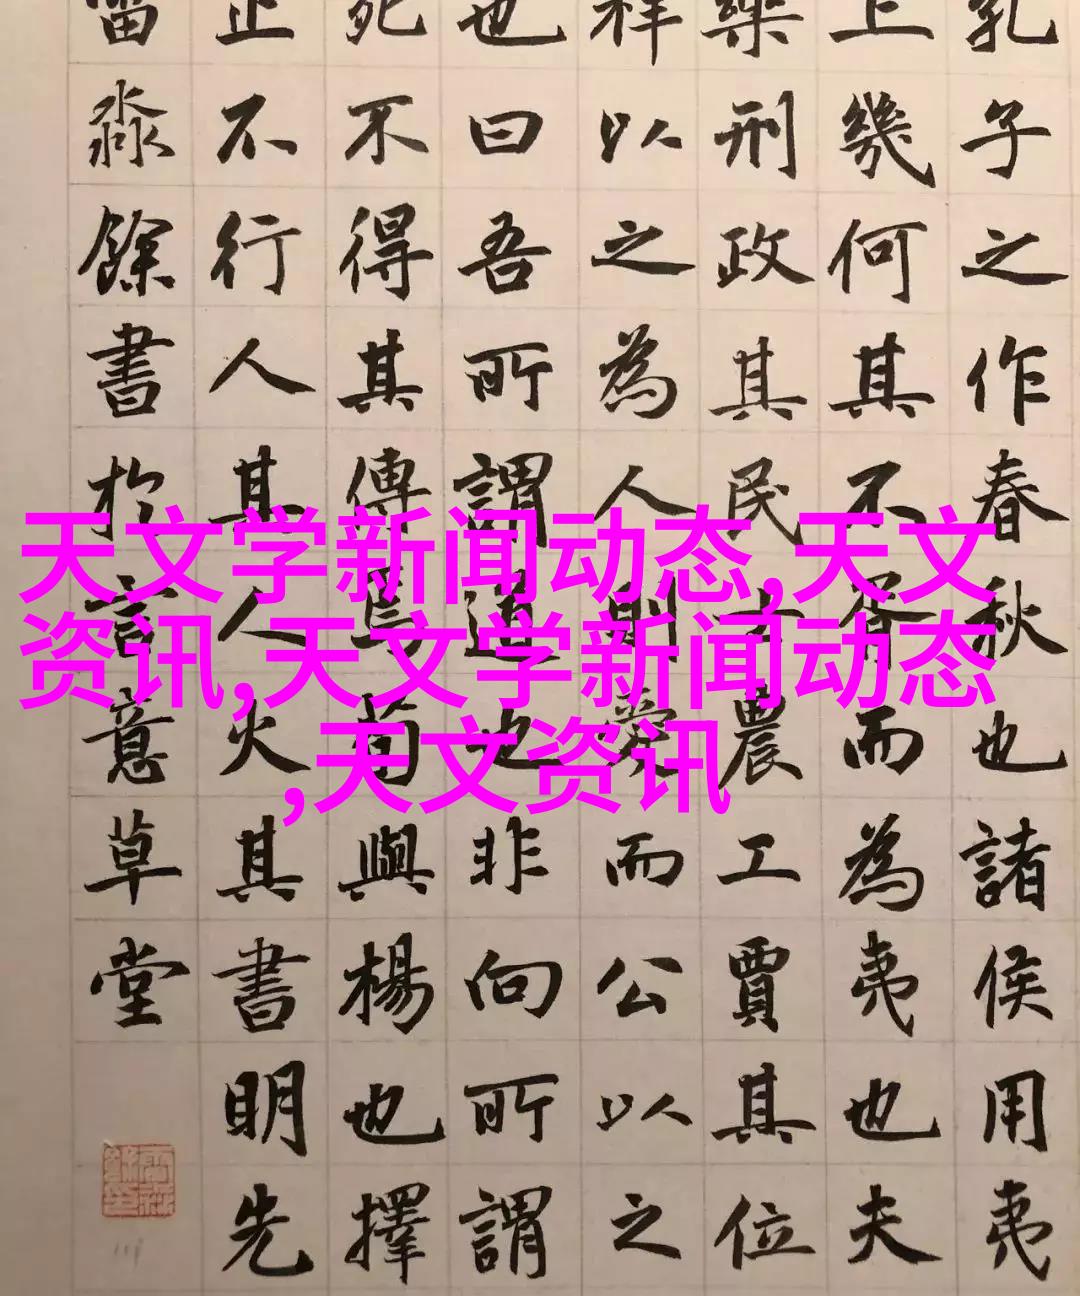 孔子之作春秋也諸侯用夷
上幾何其不胥而為夷也夫
樂刑政其民士農工賈其位
祥以之為人則愛而公以之
也曰吾所謂道也非向所謂
死不得其傳焉荀與楊也擇
止不行人其人火其書明先
淼餘書於意草堂
天文学新闻动态,天文
资讯,天文学新闻动态
,天文资讯